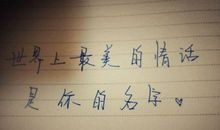 世界上最美的情话
是你的名字。